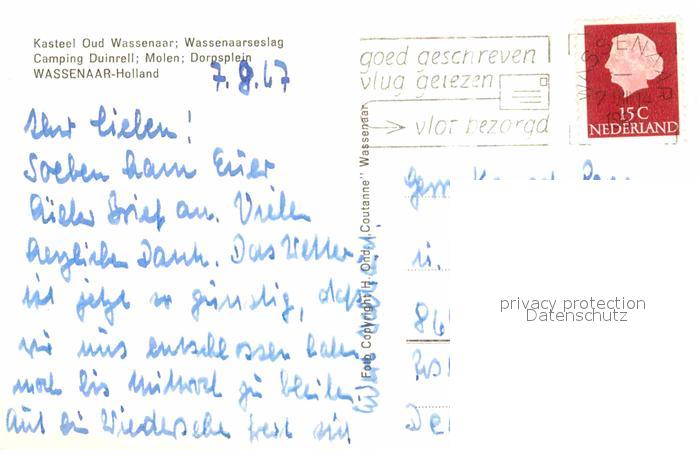 Kasteel Oud Wassenaar; Wassenaarseslag
Camping Duinrell; Molen; Dorpsplein
WASSENAAR-Holland
7.8.67
Ihr Lieben!
Soeben kam Euer
lieber Brief an. Vielen
herzlichen Dank. Das Wetter
ist jetzt so günstig, daß
wir uns entschlossen haben
noch bis Mittwoch zu bleiben.
Auf ein Wiedersehn freut sich
Foto Copyright H. Onder „Coutanne" Wassenaar
goed geschreven
vlug gelezen
vlot bezorgd
WASSENAAR
15 C
NEDERLAND
u.
privacy protection
Datenschutz